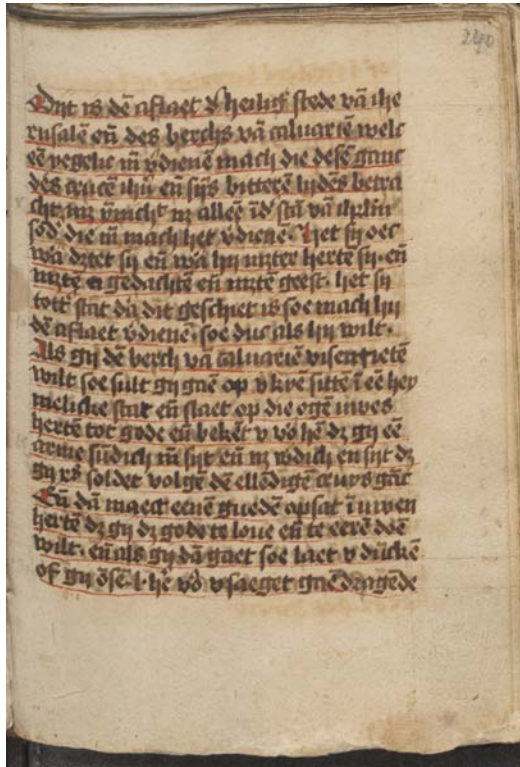 240
Dit is dē aflaet d' heilig' stede vā ihe
rusalē eñ des berchs vā caluariē welc
eē yegelic m̄ v'dienē mach die desē ganc
des crucē ihū eñ sijs bitterē lidēs betra
cht nz alleē ī d' stat vā ihrlm
die m̄ mach het v'dienē. Het sij oec
wa dz tet sij eñ wa hij mz ter herte sij. eñ
mz tē gedachtē eñ mz tē geest. het sij
tott' stat da dit geschiet is soe mach hij
dē aflaet v'dienē. soe duc als hij wilt.
Als gij dē berch vā caluariē visentietē
wilt soe sult gij gaē op v knyē sittē ī eē hey
melicke stat eñ slaet op die ogē uwes
hertē tot gode eñ bekēt v vō hē dz gij eē
arme sūdich m̄ sijt eñ nz w'dich en sijt dz
gij xp̄s soldet volgē dē ellēdigē cruys gāc
Eñ dā maect eenē guedē opsat ī uwen
hertē dz gij dz gode te loue eñ te eerē doē
wilt. eñ als gij dā gaet soe laet v dūckē
of gij ōsē l. hē vō v saeget gaē dragēde